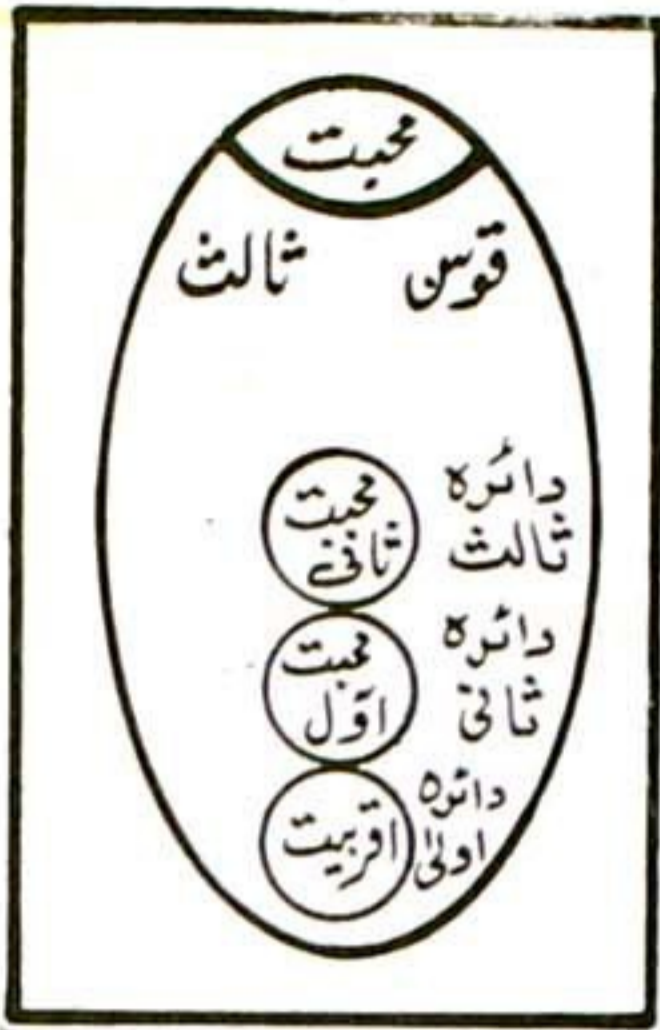 محبت
قوس ثالث
دائرہ
ثالث
محبت
ثانی
دائرہ
ثانی
محبت
اوّل
دائرہ
اولیٰ
اقربیت